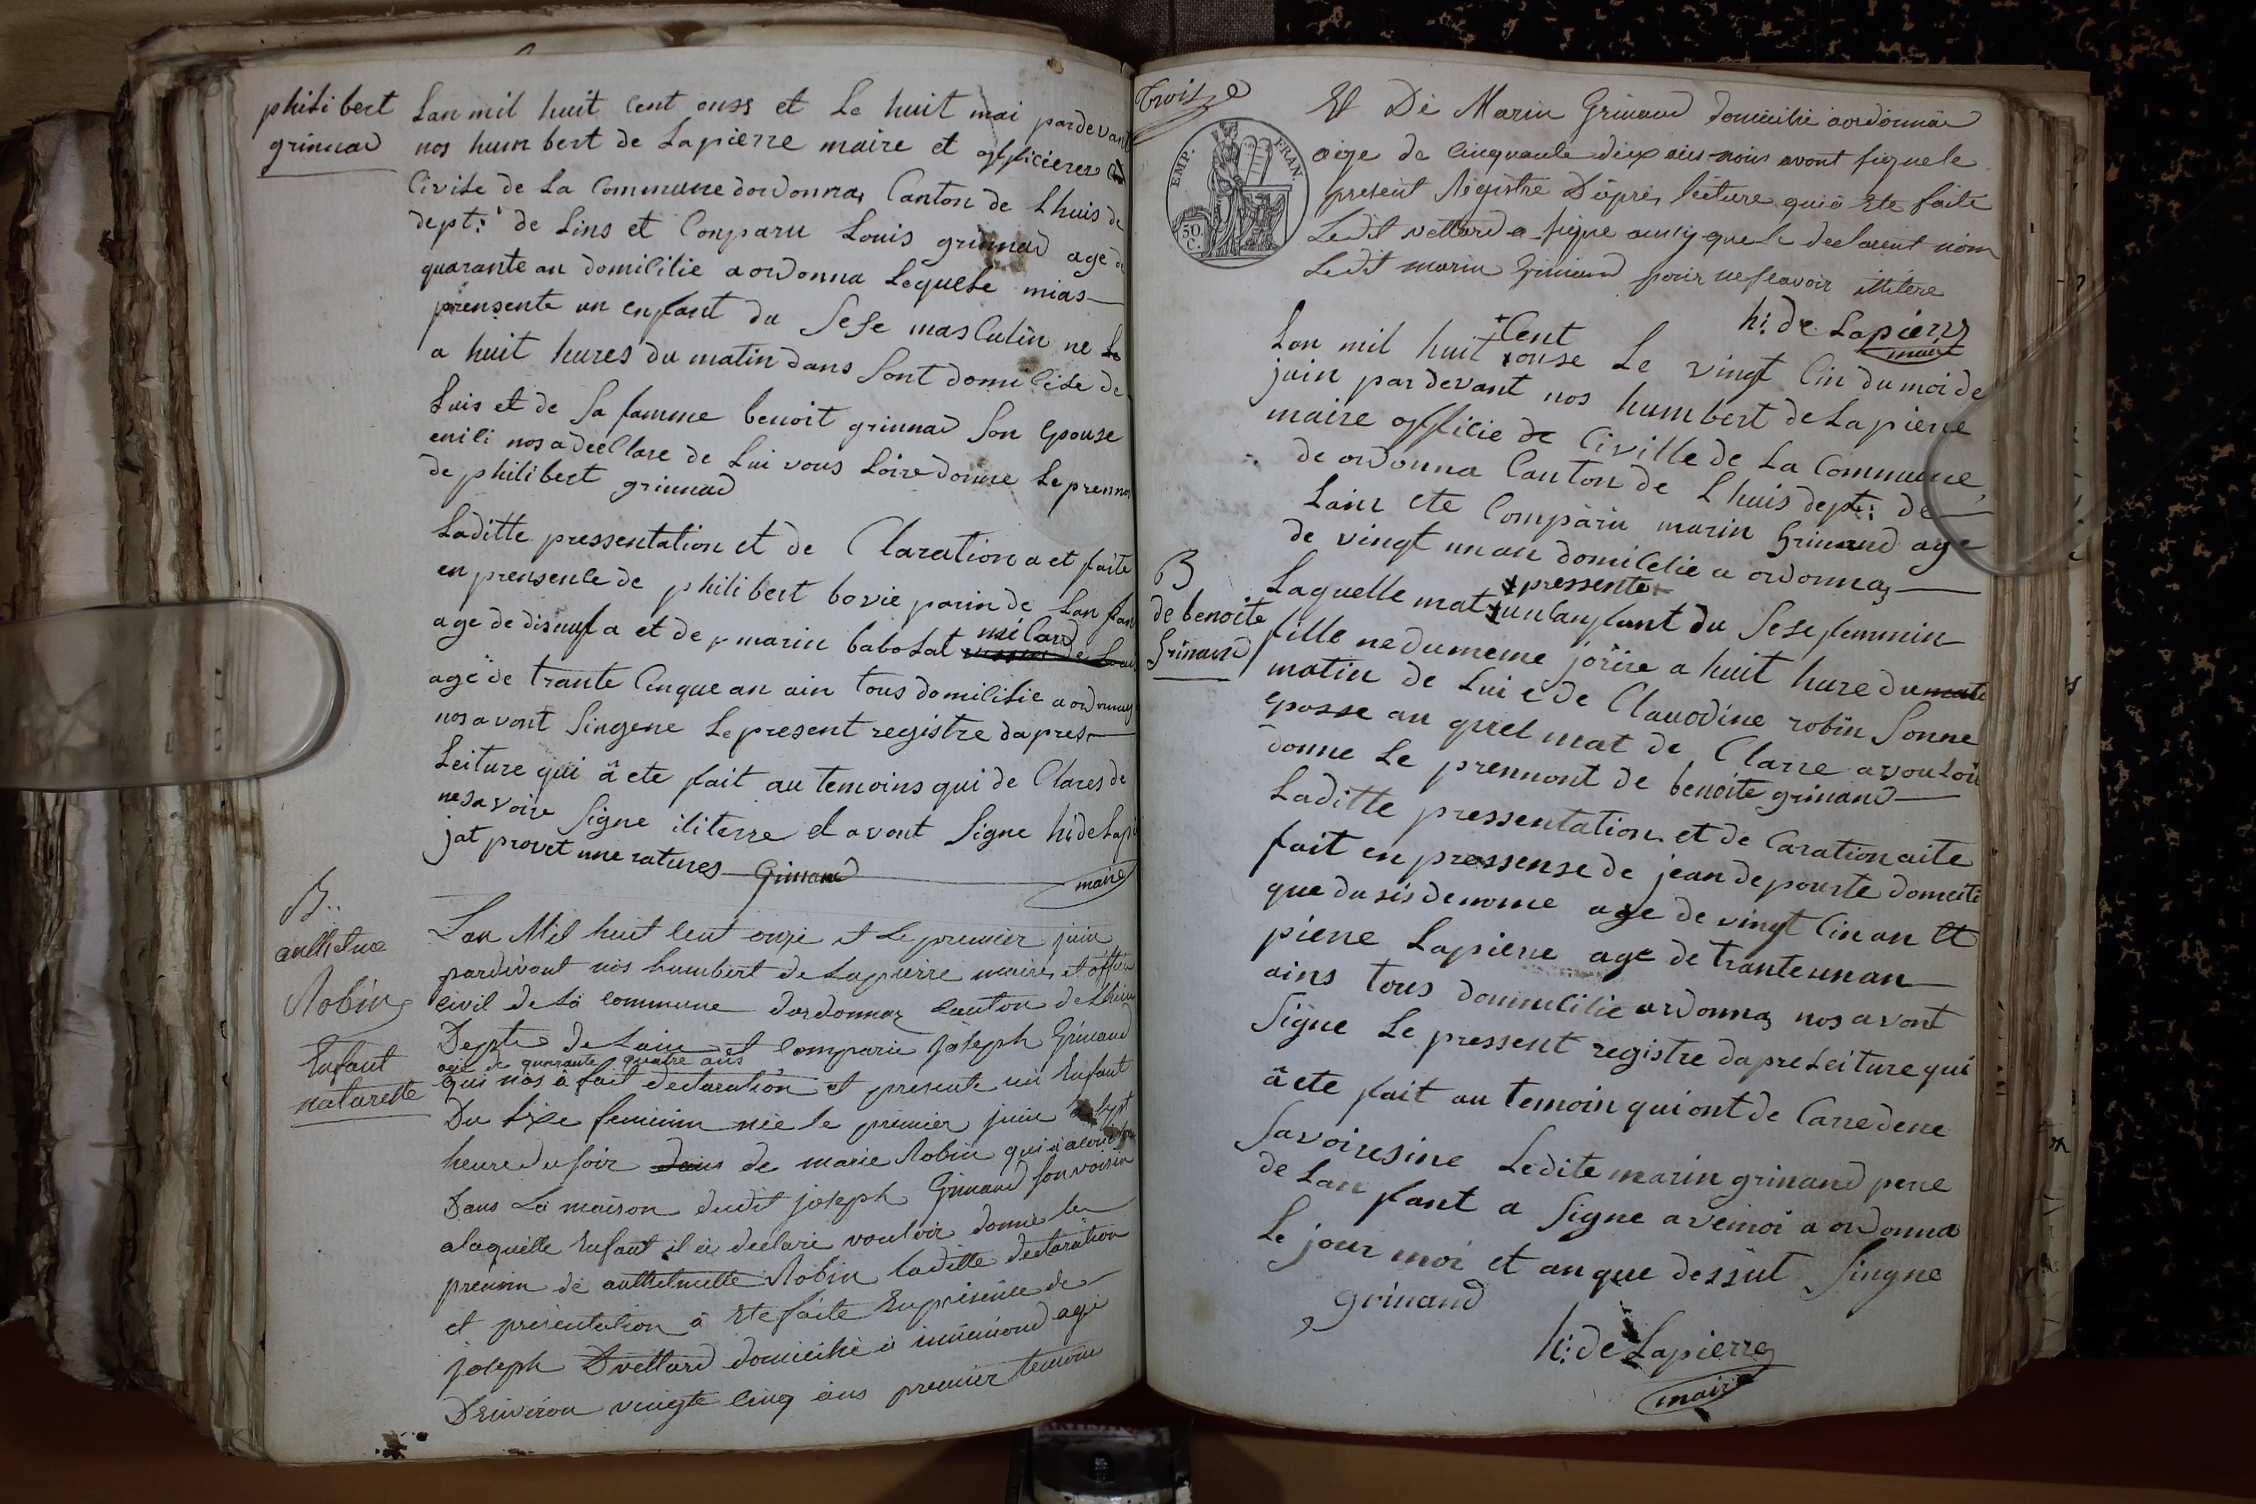 philibert
grinnad
Lan mil huit Cent onss et Le huit mai pardevant
nos humbert de Lapierre maire et offficierer
Civile de La Commune dordonnas Canton de Lhuis de
dept: de Lins et Conparu Louis grinnad age de
quarante an domicilie a ordonna Lequele mias
prensente un enfant du Sese masCulin ne Le
a huit hures du matin dans Sont domicile de
Luis et de Sa famme benoit grinnad Son Epouse
enili nos a decllare de Lui vous Loire donne Leprennon
de philibert grinnad
Laditte pressentation et de Claration a et faite
en prensence de philibert bovie parin de Lan fan
age de disnuf a et de marin babolat
age de trante Cinque an ain tous domicilie a ordonnas
nos avont Singene Lepresent registre dapres
Leiture qui a ete fait au temoins qui de Clares de
ne savoire Signe ititerre et avont Signe h: de Lapi
jat provet une ratures Grinand
maire
B..
anthelme
Robin
Enfant
naturelle
Lan Mil huit Cent onze et Le premier juin
pardevant nos humbert de Lapierre maire et offici
civil de La commune dordonnas Canton de Lhuis
Dept de Lain et Comparu Joseph Grinand
age de quarante quatre ans
qui nos à fait declaration et presente un Enfant
Du Sixe feminin née le premier juin a Sept
heure du soir dans de marie Robin qui
Dans La maison dudit joseph Grinand son voisin
alaquelle Enfant il a declaré vouloir donné le
prenom de anthelmette Robin laditte declaration
et présentation à Ete faite En présence de
joseph Dvettard domicilié à inimond agé
Denviron vingte cinq ans premier temoin
Troize
EMP. FRAN.
50.
C.
Et De Marin Grinand domicilié a ordonnas
aige de Cinquante dix ans nous avont signe le
present Régistre Daprès leiture qui à Ete faite
Ledit vettard a signe aussy que le declarent nom
Ledit marin Grinand pour ne scavoir ittitére
h: de Lapierre
maire
Cent
Lan mil huit onse Le vingt Cin du moi de
juin pardevant nos humbert deLapiene
maire offficie de Civille de La Commune
de ordonna Canton de Lhuis dept: de
Lain ete Comparu marin Grinand age
de vingt un an domicilie a ordonnas
B
de benoite
Grinand
pressente
Laquelle mat un lanfant du Sese femmin
fille ne du meme jorire a huit hure du mati
matin de Lui e de Clauodine robin Sonne
eposse au quel mat de Clarre avouLoir
donne Le prennont de benoite grinand
Laditte pressentation et de Caration aite
fait en pressense de jean depourte domesti
que du sis de nome age de vingt Cin an et
piene Lapiene age de trante un an
ains tous doumicilie ardonnas nos avont
Signe Le pressent registre dapre Leiture qui
a ete fait au temoin qui ont de Carre dene
Savoire sine Ledite marin grinand pere
de Lan fant a Signe avemoi a ordonna
Le jour moi et an que dessut Singne
grinand
h: de Lapierre
maire